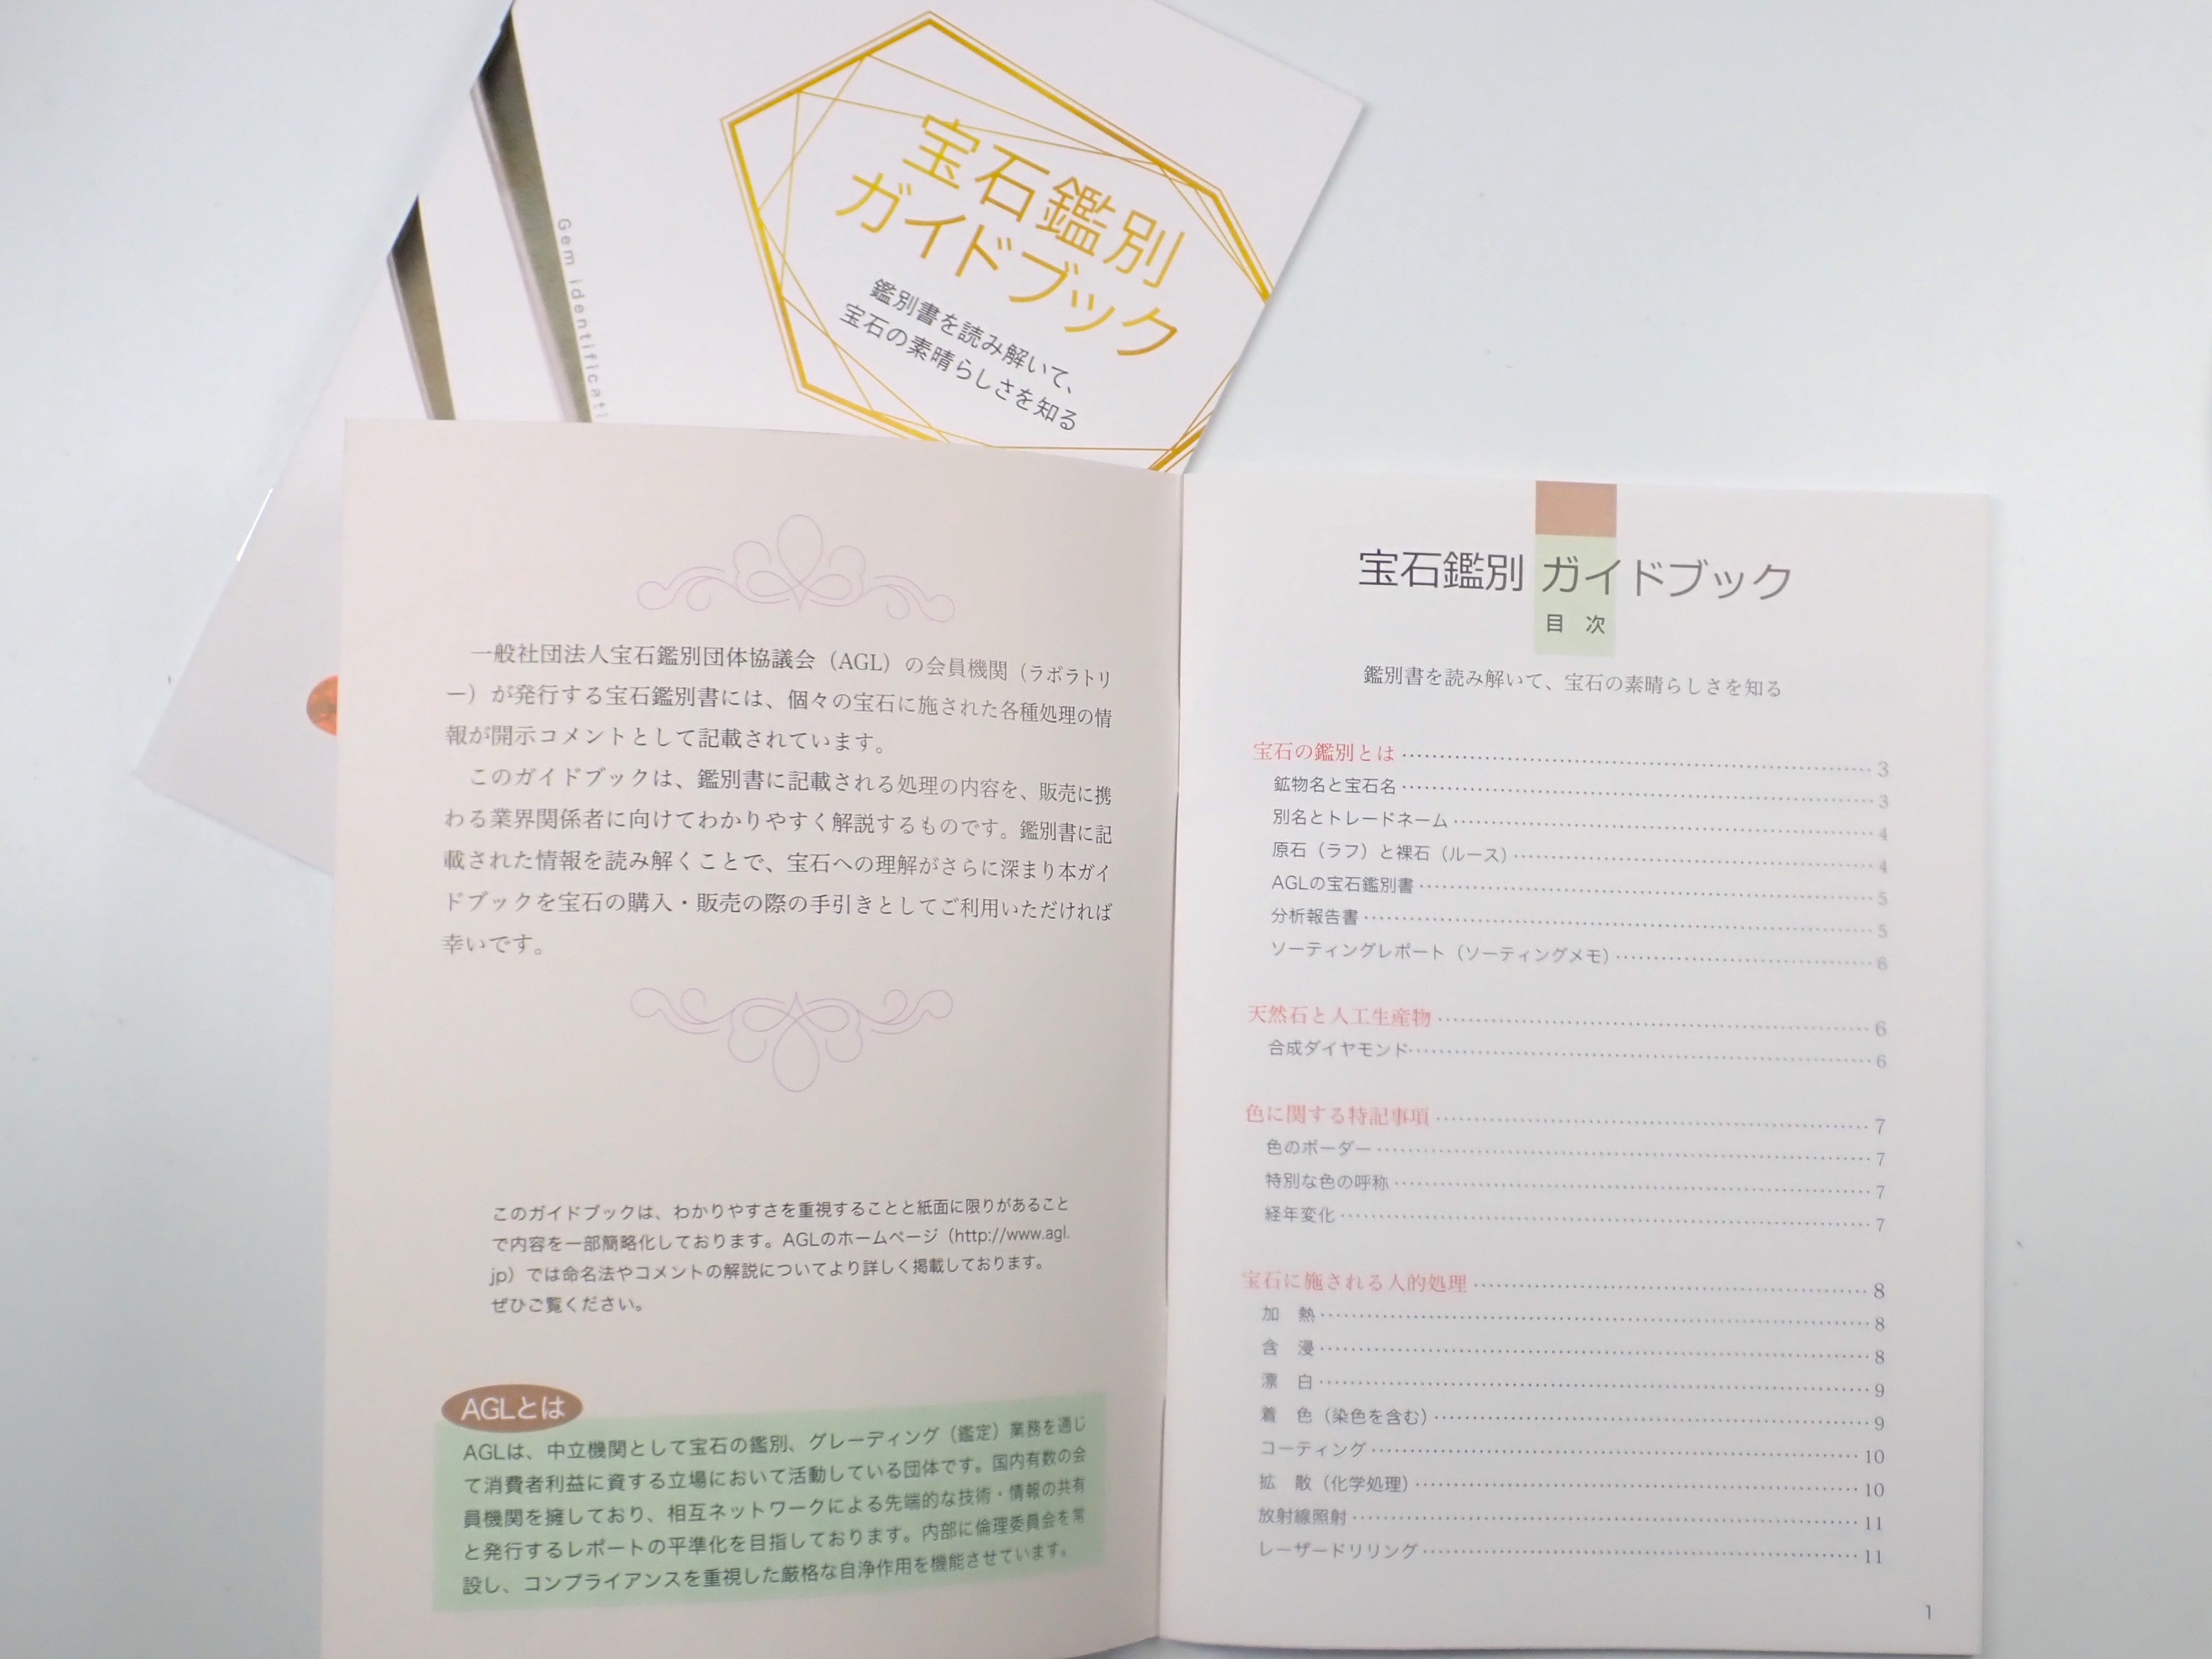 宝石鑑別
ガイドブック
鑑別書を読み解いて、
宝石の素晴らしさを知る
Gem
一般社団法人宝石鑑別団体協議会（AGL）の会員機関（ラボラトリ
ー）が発行する宝石鑑別書には、個々の宝石に施された各種処理の情
報が開示コメントとして記載されています。
このガイドブックは、鑑別書に記載される処理の内容を、販売に携
わる業界関係者に向けてわかりやすく解説するものです。鑑別書に記
載された情報を読み解くことで、宝石への理解がさらに深まり本ガイ
ドブックを宝石の購入・販売の際の手引きとしてご利用いただければ
幸いです。
このガイドブックは、わかりやすさを重視することと紙面に限りがあること
で内容を一部簡略化しております。AGLのホームページ（http://www.agl.
jp）では命名法やコメントの解説についてより詳しく掲載しております。
ぜひご覧ください。
AGLとは
AGLは、中立機関として宝石の鑑別、グレーディング（鑑定）業務を通じ
て消費者利益に資する立場において活動している団体です。国内有数の会
員機関を擁しており、相互ネットワークによる先端的な技術・情報の共有
と発行するレポートの平準化を目指しております。内部に倫理委員会を常
設し、コンプライアンスを重視した厳格な自浄作用を機能させています。
宝石鑑別 ガイドブック
目 次
鑑別書を読み解いて、宝石の素晴らしさを知る
宝石の鑑別とは 3
鉱物名と宝石名 3
別名とトレードネーム 4
原石（ラフ）と裸石（ルース） 4
AGLの宝石鑑別書 5
分析報告書 5
ソーティングレポート（ソーティングメモ） 6
天然石と人工生産物 6
合成ダイヤモンド 6
色に関する特記事項 7
色のボーダー 7
特別な色の呼称 7
経年変化 7
宝石に施される人的処理 8
加 熱 8
含 浸 8
漂 白 9
着 色（染色を含む） 9
コーティング 10
拡 散（化学処理） 10
放射線照射 11
レーザードリリング 11
1